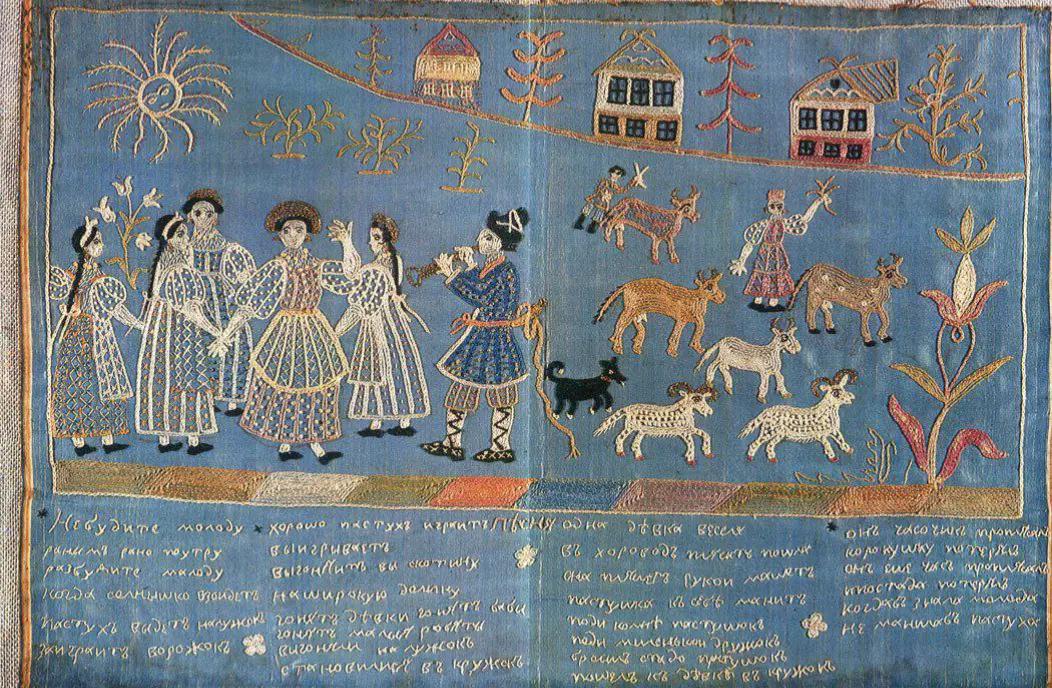 Пѣсня
Небудите молоду
ранымъ рано поутру
разбудите молоду
когда солнышко взойдетъ
пастухъ выдетъ налужокъ
заиграитъ ворожокъ
хорошо пастухъ играитъ
выигрываетъ
выгонǀите вы скотину
наширокую долину
гонютъ дѣвки гонютъ бабы
гонютъ малыя робяты
выгоныи на лужокъ
становилися въ кружокъ
одна дѣвка весела
въ хороводъ плисать пошла
она пляшетъ рукой машетъ
пастушка къ себѣ манитъ
поди комнѣ пастушокъ
поди миленькой дружокъ
бросилъ стадо пастушокъ
пошелъ къ дѣвки въ кружокъ
онъ часочикъ проплисалъ
корокушку потерялъ
онъ еще часъ проплисалъ
потерялъ
когдабъ знала молода
не манилабъ пастуха